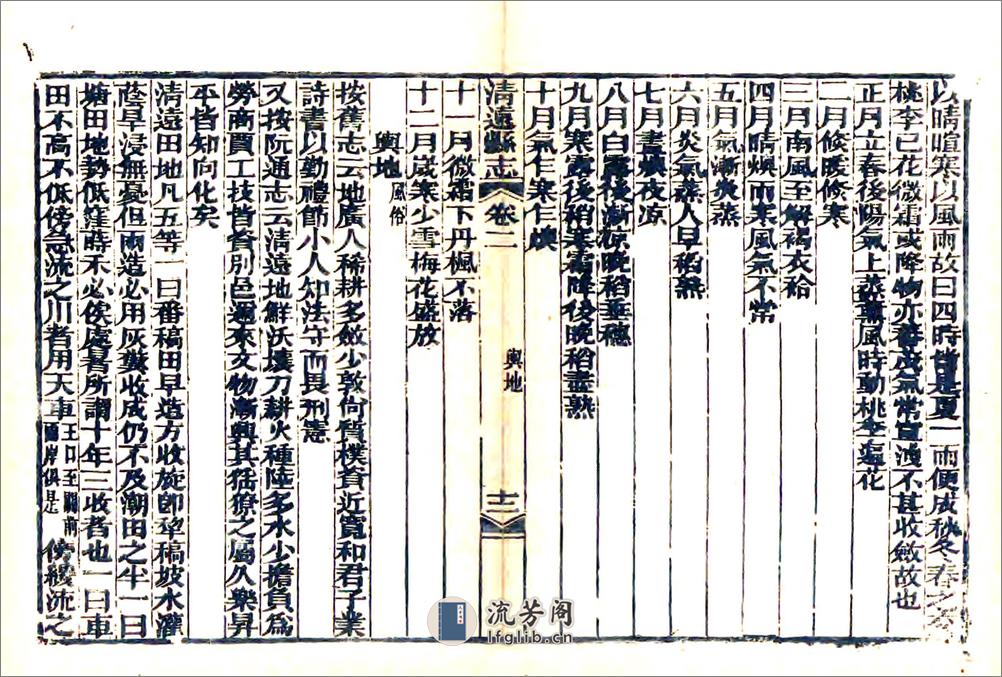 以晴暄寒以風雨故曰四時皆是夏一雨便成秋冬春之交
桃李已花微霜或降物亦蕃成氣常宣洩不甚收斂故也
正月立春後陽氣上蒸東風時動桃李遍花
二月倏暖倏寒
三月南風至解褐衣袷
四月晴燠雨寒風氣不常
五月氣漸炎蒸
六月炎氣蒸人早稻熟
七月晝燠夜凉
八月白露後漸凉晚稻垂穗
九月寒露後稍寒霜降後晚稻盡熟
十月氣乍寒乍燠
清遠縣志 卷二 輿地 十二
十一月微霜下丹楓不落
十二月歲寒少雪梅花盛放
輿地 風俗
按舊志云地廣人稀耕多斂少敦尙質樸貧近寬和君子業
詩書以勤禮節小人知法守而畏刑憲
又按阮通志云清遠地鮮沃壤刀耕火種陸多水少擔負爲
勞商賈工技皆別邑邇來文物漸興其猺獠之屬久樂昇
平皆知向化矣
清遠田地凡五等一曰番稿田早造方收旋卽犂稿坡水灌
蔭旱浸無憂但兩造必用灰糞收成仍不及潮田之半一曰
塘田地勢低窪蒔禾必俟處暑所謂十年三收者也一曰車
田不高不低傍急流之川者用天車王口至關前兩岸俱是傍緩流之
流芳阁
lfglib.cn